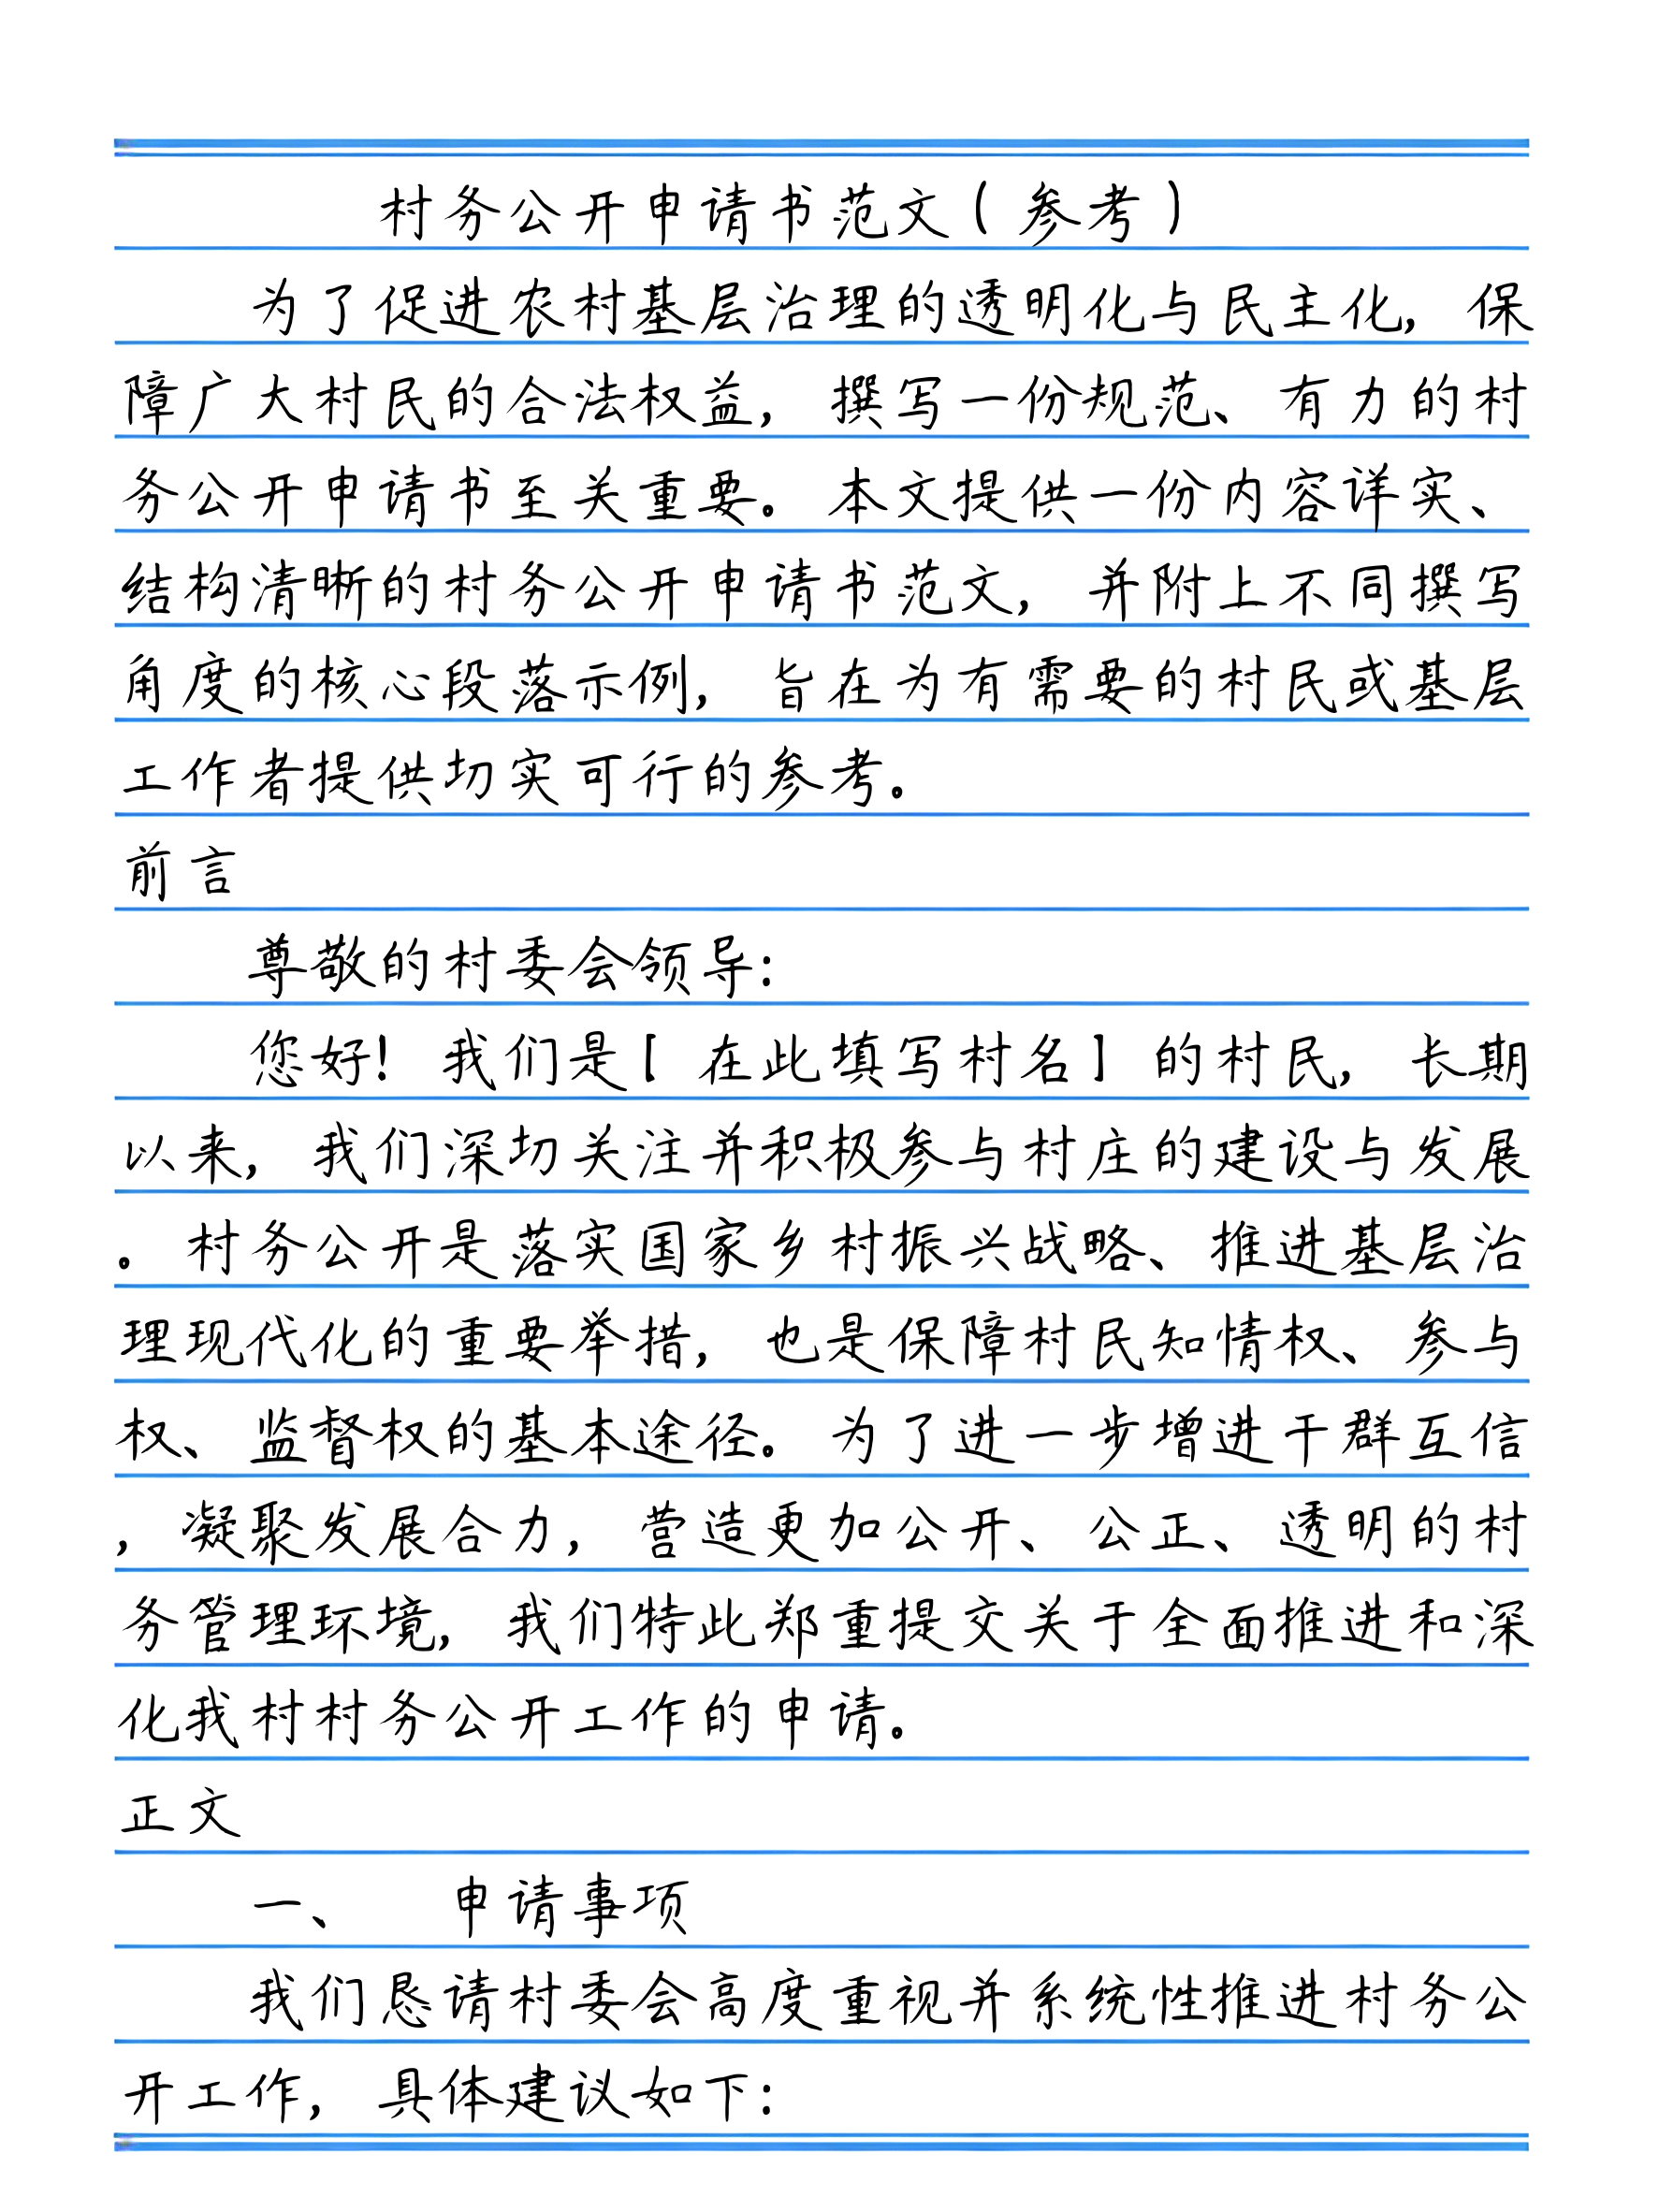 村务公开申请书范文(参考)
为了促进农村基层治理的透明化与民主化,保
障广大村民的合法权益,撰写一份规范、有力的村
务公开申请书至关重要。本文提供一份内容详实、
结构清晰的村务公开申请书范文,并附上不同撰写
角度的核心段落示例,旨在为有需要的村民或基层
工作者提供切实可行的参考。
前言
尊敬的村委会领导:
您好!我们是【在此填写村名】的村民,长期
以来,我们深切关注并积极参与村庄的建设与发展
。村务公开是落实国家乡村振兴战略、推进基层治
理现代化的重要举措,也是保障村民知情权、参与
权、监督权的基本途径。为了进一步增进干群互信
,凝聚发展合力,营造更加公开、公正、透明的村
务管理环境,我们特此郑重提交关于全面推进和深
化我村村务公开工作的申请。
正文
一、 申请事项
我们恳请村委会高度重视并系统性推进村务公
开工作,具体建议如下: